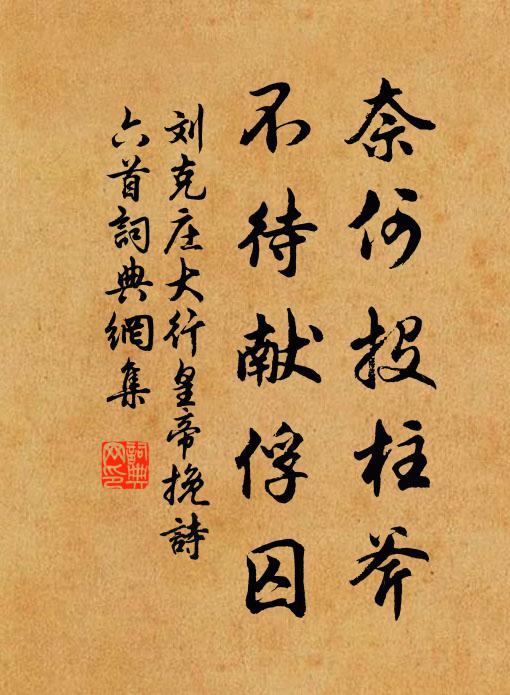 奈何投柱斧
不待献俘囚
刘克庄大行皇帝挽詩
六首詞典網集
詞典
网印